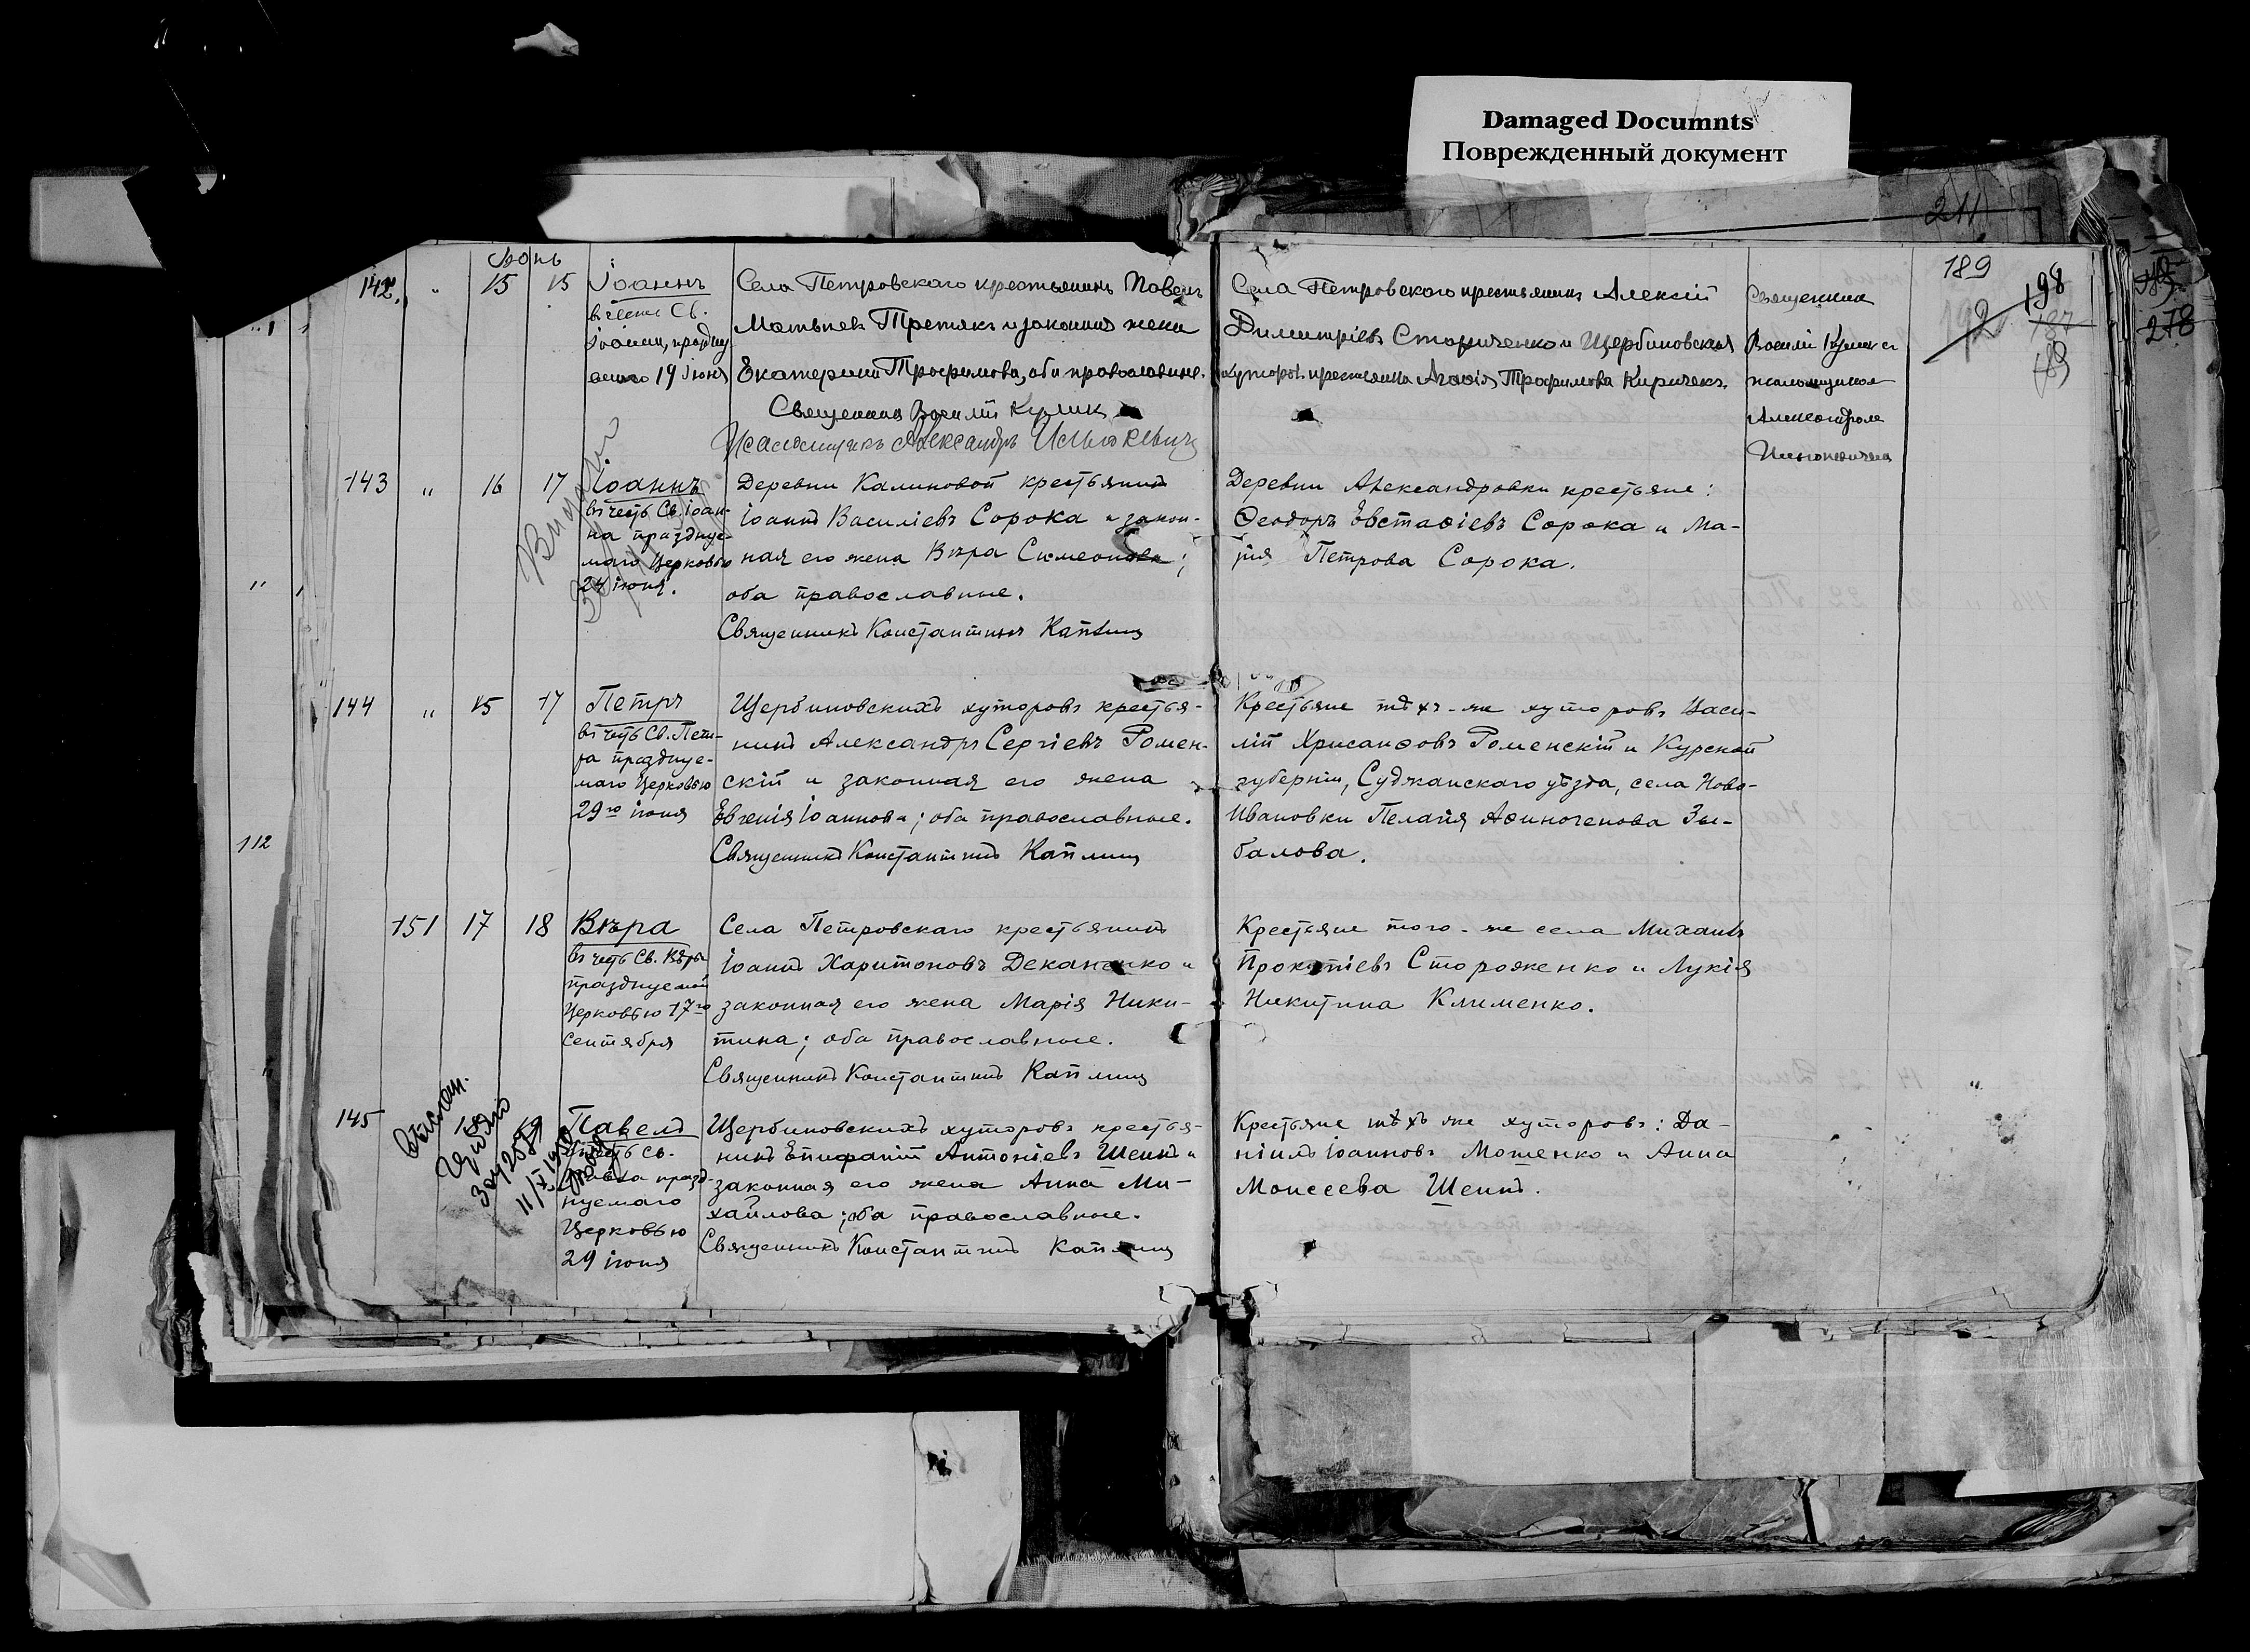 Damaged Documnts
Поврежденный документ
211
189
198
192
187
189
278
Іюнь
142. " 15 15 Іоаннъ
въ честь Св.
Іоанна, праздну
емаго 19 Іюня
Села Петровскаго крестьянинъ Павелъ
Матвѣевъ Третякъ и законная жена
Екатерина Трофимова, оба православные.
Священникъ Василій Куликъ
Псаломщикъ Александръ
Села Петровскаго крестьянинъ Алексій
Димитріевъ и Щербиновскихъ
хуторовъ крестьянка Агафія Трофимова Киричекъ.
Священникъ
Василій Куликъ съ
псаломщикомъ
Александромъ
143 " 16 17 Іоаннъ
въ честь Св. Іоан-
на праздну́е-
маго Церковью
24 іюня.
Деревни Калиновой крестьянинъ
Іоаннъ Василіевъ Сорока и закон-
ная его жена Вѣра Симеонова;
оба православные.
Священникъ Константинъ Каплинъ
Деревни Александровки крестьяне:
Ѳеодоръ Евстаѳіевъ Сорока и Ма-
рія Петрова Сорока.
144 " 15 17 Петръ
въ честь Св. Пет-
ра праздну́е-
маго Церковью
29го іюня
Щербиновскихъ хуторовъ крестья-
нинъ Александръ Сергіевъ Ромен-
скій и законная его жена
Евгенія Іоаннова; оба православные.
Священникъ Константинъ Каплинъ
Крестьяне тѣхъ-же хуторовъ Васи-
лій Хрисанѳовъ Роменскій и Курской
губерніи, Суджанскаго уѣзда, села Ново-
Ивановки Пелагія Зы-
балова.
112
151 17 18 Вѣра
въ честь Св. Вѣры
празднуемой
Церковью 17го
сентября
Села Петровскаго крестьянинъ
Іоаннъ Харитоновъ Деканенко и
законная его жена Марія Ники-
тина; оба православные.
Священникъ Константинъ Каплинъ
Крестьяне того-же села Михаилъ
Прокопіевъ Стороженко и Лукія
Никитина Клименко.
145
Павелъ
въ честь Св.
Павла празд-
нуемаго
Церковью
29 іюня
Щербиновскихъ хуторовъ крестья-
нинъ Епифаній Антоніевъ Шеинъ и
законная его жена Анна Ми-
хайлова; оба православные.
Священникъ Константинъ Каплинъ
Крестьяне тѣхъ же хуторовъ: Да-
ніилъ Іоанновъ Мотенко и Анна
Моисеева Шеинъ.